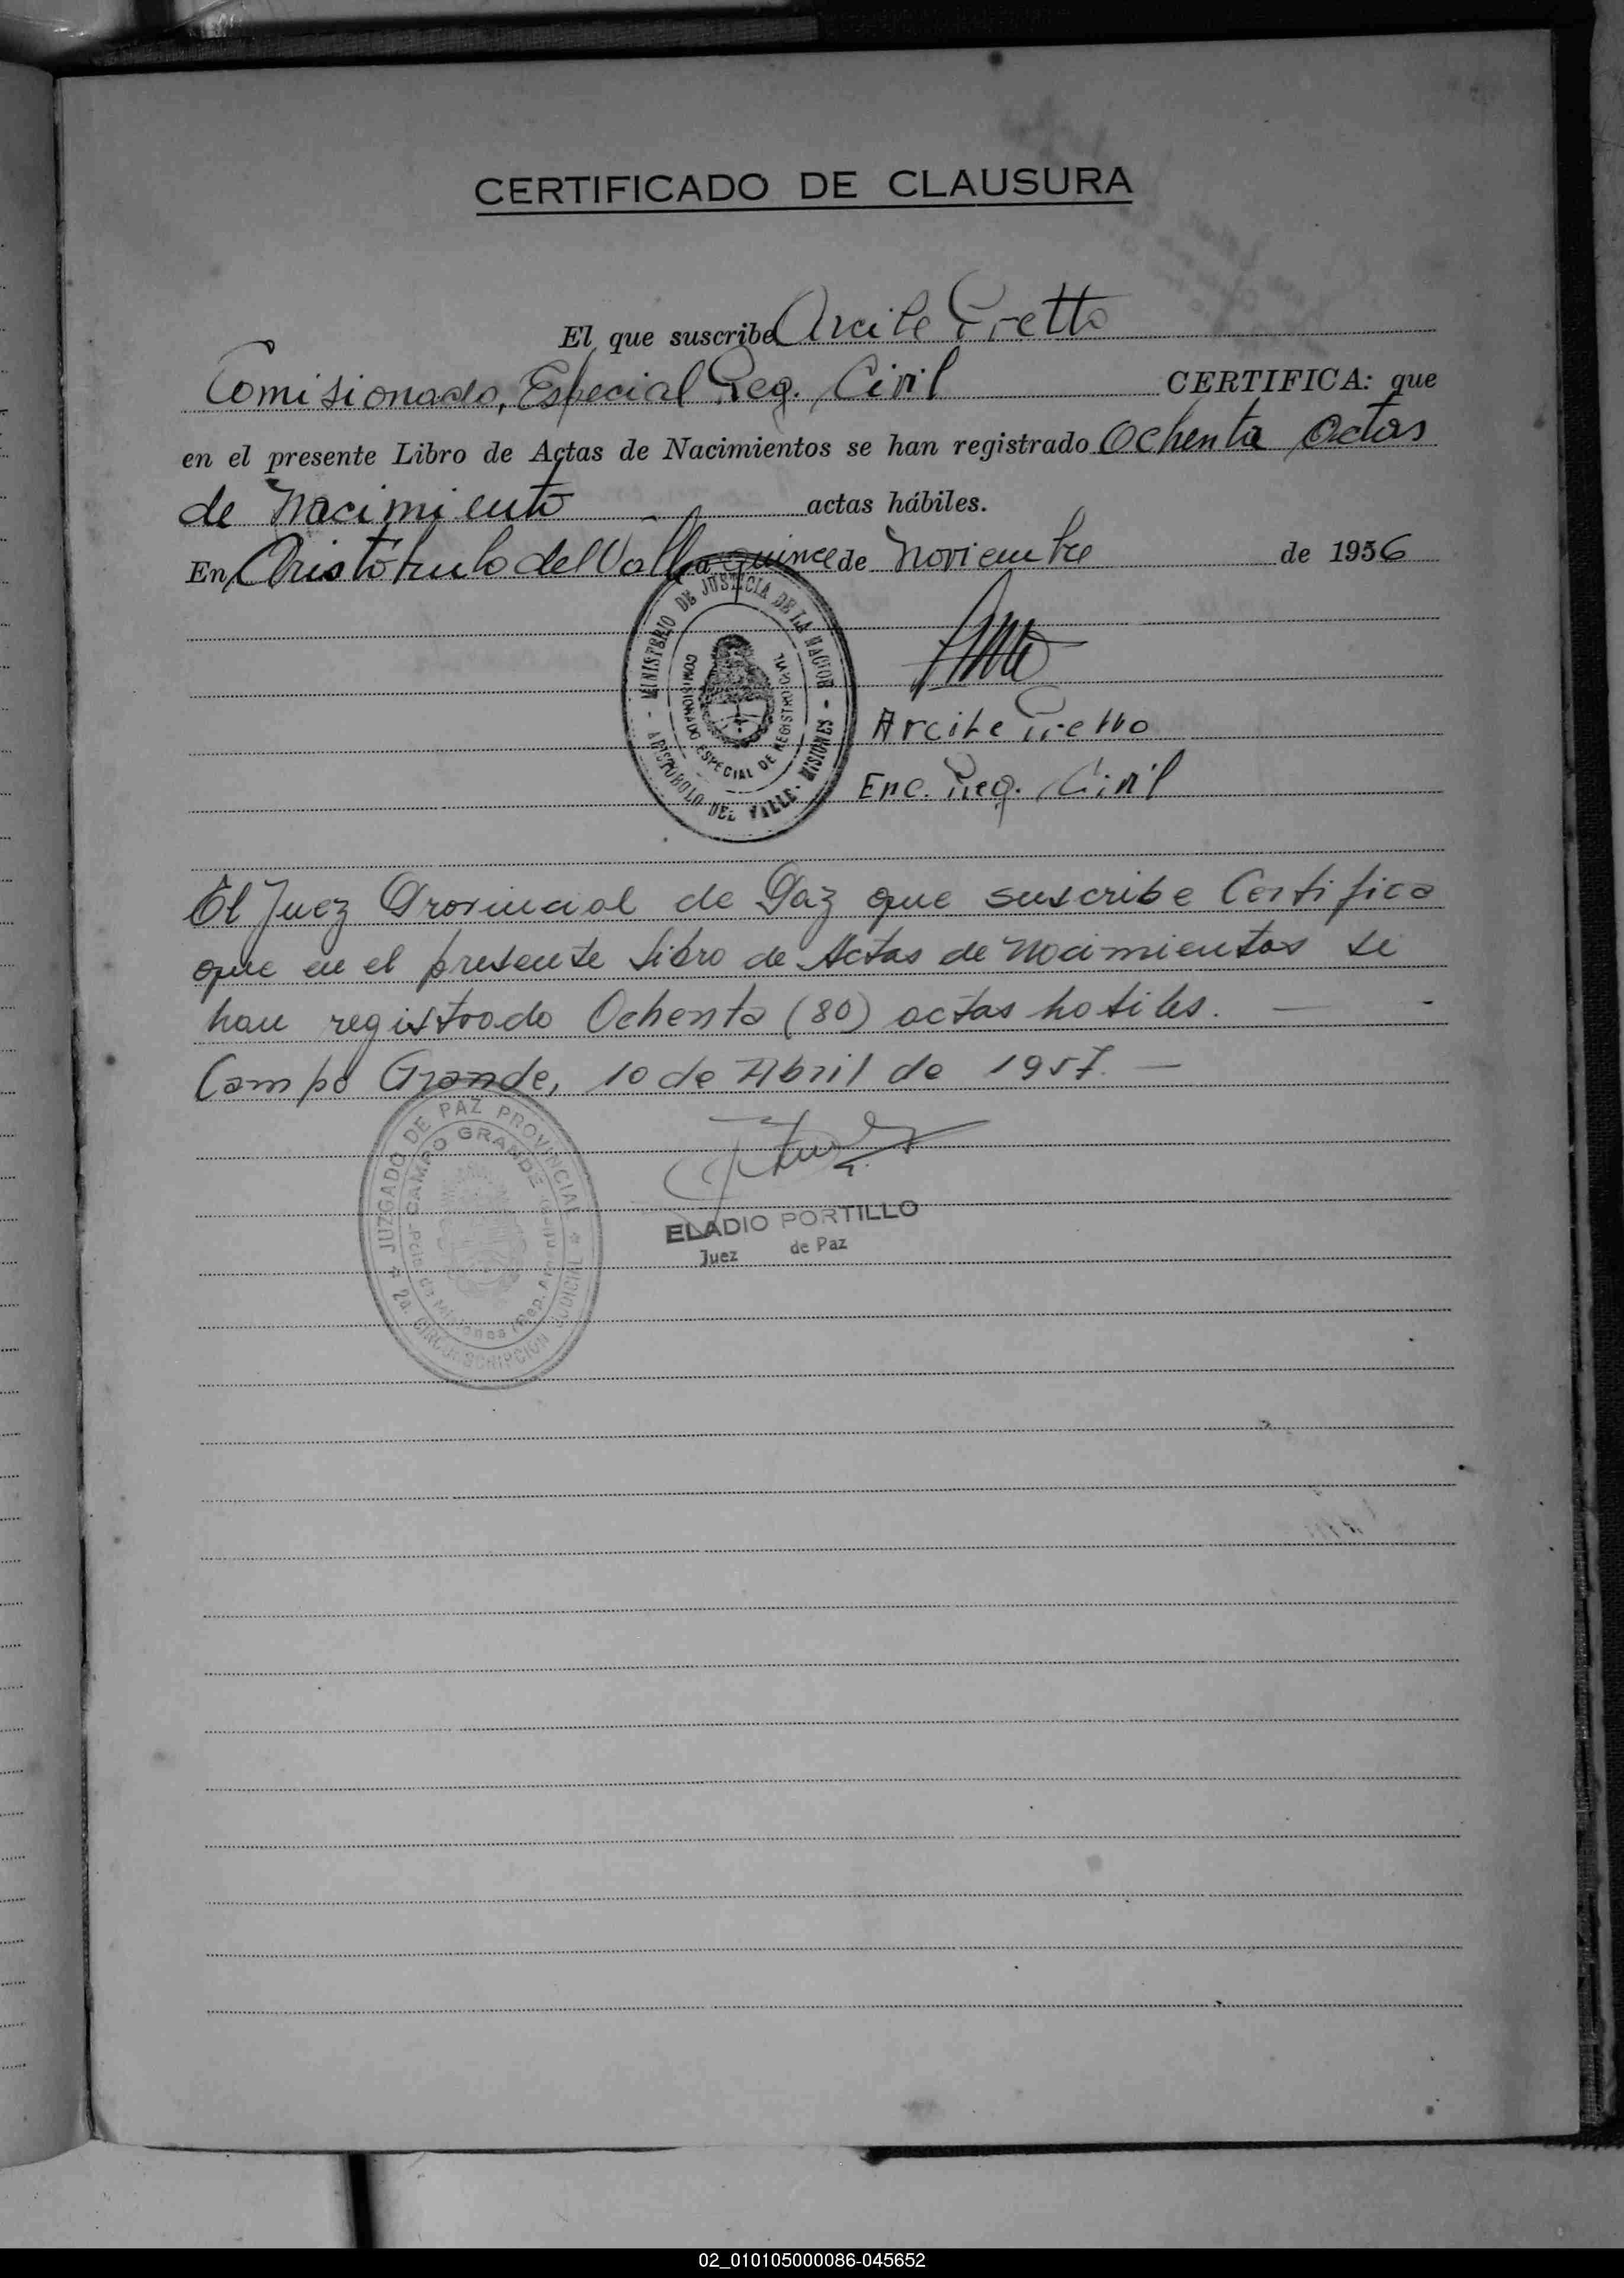 CERTIFICADO DE CLAUSURA
El que suscribe Arcile Pretto
Comisionado, Especial Reg. Civil CERTIFICA: que
en el presente Libro de Actas de Nacimientos se han registrado Ochenta actas
de Nacimiento actas hábiles.
En Aristóbulo del Valle a quince de Noviembre de 1956
- MINISTERIO DE JUSTICIA DE LA NACION -
COMISIONADO ESPECIAL DE REGISTRO CIVIL
ARISTOBULO DEL VALLE - MISIONES
Arcile Pretto
Enc. Reg. Civil
El Juez Provincial de Paz que suscribe Certifica
que en el presente libro de Actas de Nacimientos se
han registrado Ochenta (80) actas habiles. —
Campo Grande, 10 de Abril de 1957. —
JUZGADO DE PAZ PROVINCIAL
CAMPO GRANDE
2a. CIRCUNSCRIPCION JUDICIAL
ELADIO PORTILLO
Juez de Paz
02_010105000086-045652